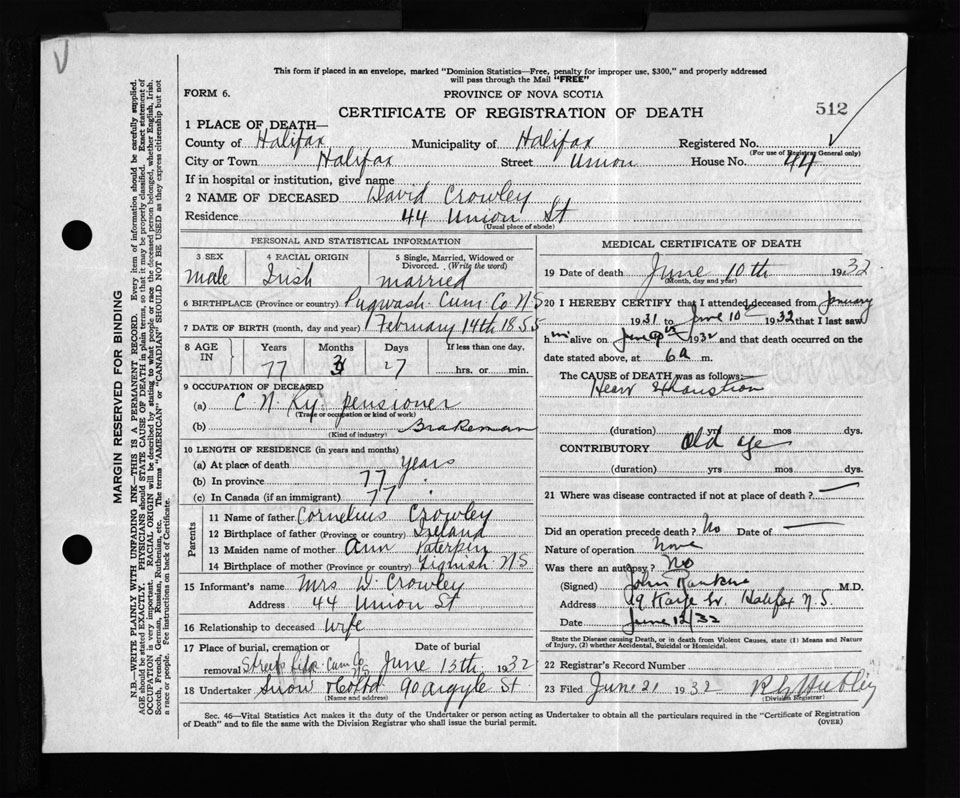 V
This form if placed in an envelope, marked "Dominion Statistics—Free, penalty for improper use, $300," and properly addressed
will pass through the Mail "FREE"
FORM 6.
PROVINCE OF NOVA SCOTIA
CERTIFICATE OF REGISTRATION OF DEATH
512
1 PLACE OF DEATH—
County of Halifax Municipality of Halifax Registered No.
(For use of Registrar General only)
City or Town Halifax Street Union House No. 44
If in hospital or institution, give name
2 NAME OF DECEASED David Crowley
Residence 44 Union St
(Usual place of abode)
PERSONAL AND STATISTICAL INFORMATION
3 SEX Male
4 RACIAL ORIGIN Irish
5 Single, Married, Widowed or
Divorced. (Write the word)
married
6 BIRTHPLACE (Province or country) Pugwash Cum. Co NS
7 DATE OF BIRTH (month, day and year) February 14th 1855
8 AGE IN
Years Months Days If less than one day.
77 3 27 hrs. or min.
9 OCCUPATION OF DECEASED
(a) C N Ry. pensioner
(Trade or occupation or kind of work)
(b) Brakeman
(Kind of industry)
10 LENGTH OF RESIDENCE (in years and months)
(a) At place of death years
(b) In province 77 "
(c) In Canada (if an immigrant) 77 "
Parents
11 Name of father Cornelius Crowley
12 Birthplace of father (Province or country) Ireland
13 Maiden name of mother Ann
14 Birthplace of mother (Province or country) NS
15 Informant's name Mrs D. Crowley
Address 44 Union St
16 Relationship to deceased Wife
17 Place of burial, cremation or Date of burial
removal Cum Co NS June 13th 1932
18 Undertaker Snow & Co Ltd 90 Argyle St
(Name and address)
MEDICAL CERTIFICATE OF DEATH
19 Date of death June 10th 1932
(Month, day and year)
20 I HEREBY CERTIFY that I attended deceased from January
1931 to June 10th 1932 that I last saw
him alive on June 1932 and that death occurred on the
date stated above, at 6 a m.
The CAUSE of DEATH was as follows:
Heart Exhaustion
(duration) yrs mos dys.
CONTRIBUTORY Old age
(duration) yrs mos dys.
21 Where was disease contracted if not at place of death? —
Did an operation precede death? No Date of —
Nature of operation None
Was there an autopsy? No
(Signed) John Rankine M.D.
Address Halifax N.S.
Date June 12/32
State the Disease causing Death, or in death from Violent Causes, state (1) Means and Nature
of Injury, (2) whether Accidental, Suicidal or Homicidal.
22 Registrar's Record Number
23 Filed June 21 1932
(Division Registrar)
Sec. 46—Vital Statistics Act makes it the duty of the Undertaker or person acting as Undertaker to obtain all the particulars required in the "Certificate of Registration
of Death" and to file the same with the Division Registrar who shall issue the burial permit. (OVER)
MARGIN RESERVED FOR BINDING
N.B.—WRITE PLAINLY WITH UNFADING INK—THIS IS A PERMANENT RECORD. Every item of information should be carefully supplied.
AGE should be stated EXACTLY. PHYSICIANS should STATE CAUSE OF DEATH in plain terms, so that it may be properly classified. Exact statement of
OCCUPATION is very important. RACIAL ORIGIN will be described by stating to what people or race the deceased person belonged, whether English, Irish,
Scotch, French, German, Russian, Ruthenian, etc. The terms "AMERICAN" or "CANADIAN" SHOULD NOT BE USED as they express citizenship but not
a race or people. See instructions on back of Certificate.